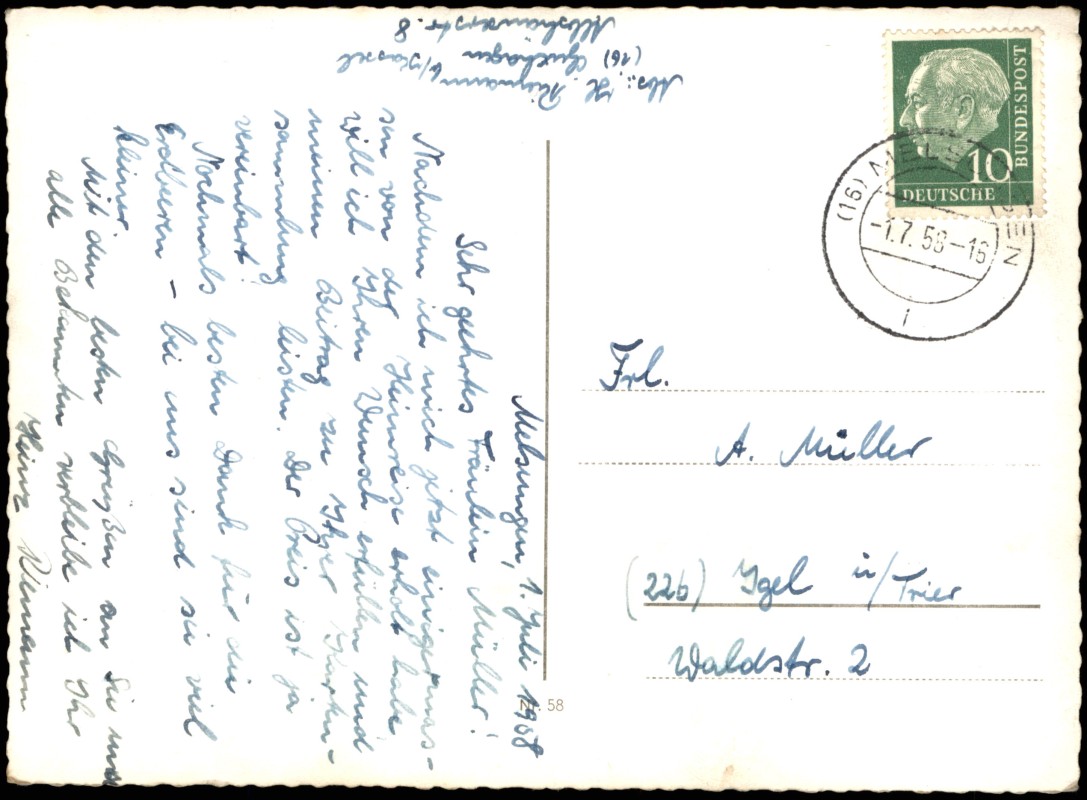 Abs.: H. Riemann
(16) Guxhagen b/Kassel
Albshäuserstr. 8
Melsungen, 1. Juli 1958
Sehr geehrtes Fräulein Müller!
Nachdem ich mich jetzt einigermas-
sen von der Heimreise erholt habe
will ich Ihren Wunsch erfüllen und
meinen Beitrag zu Ihrer Karten-
sammlung leisten. Der Preis ist ja
vereinbart!
Nochmals besten Dank für die
Erdbeeren - bei uns sind sie viel
kleiner.
Mit den besten Grüßen an Sie und
alle Bekannten verbleibe ich Ihr
Heinz Riemann
Nr. 58
10
BUNDESPOST
DEUTSCHE
(16) MELSUNGEN
-1.7.58-16
1
Frl.
A. Müller
(22b) Igel ü/Trier
Waldstr. 2